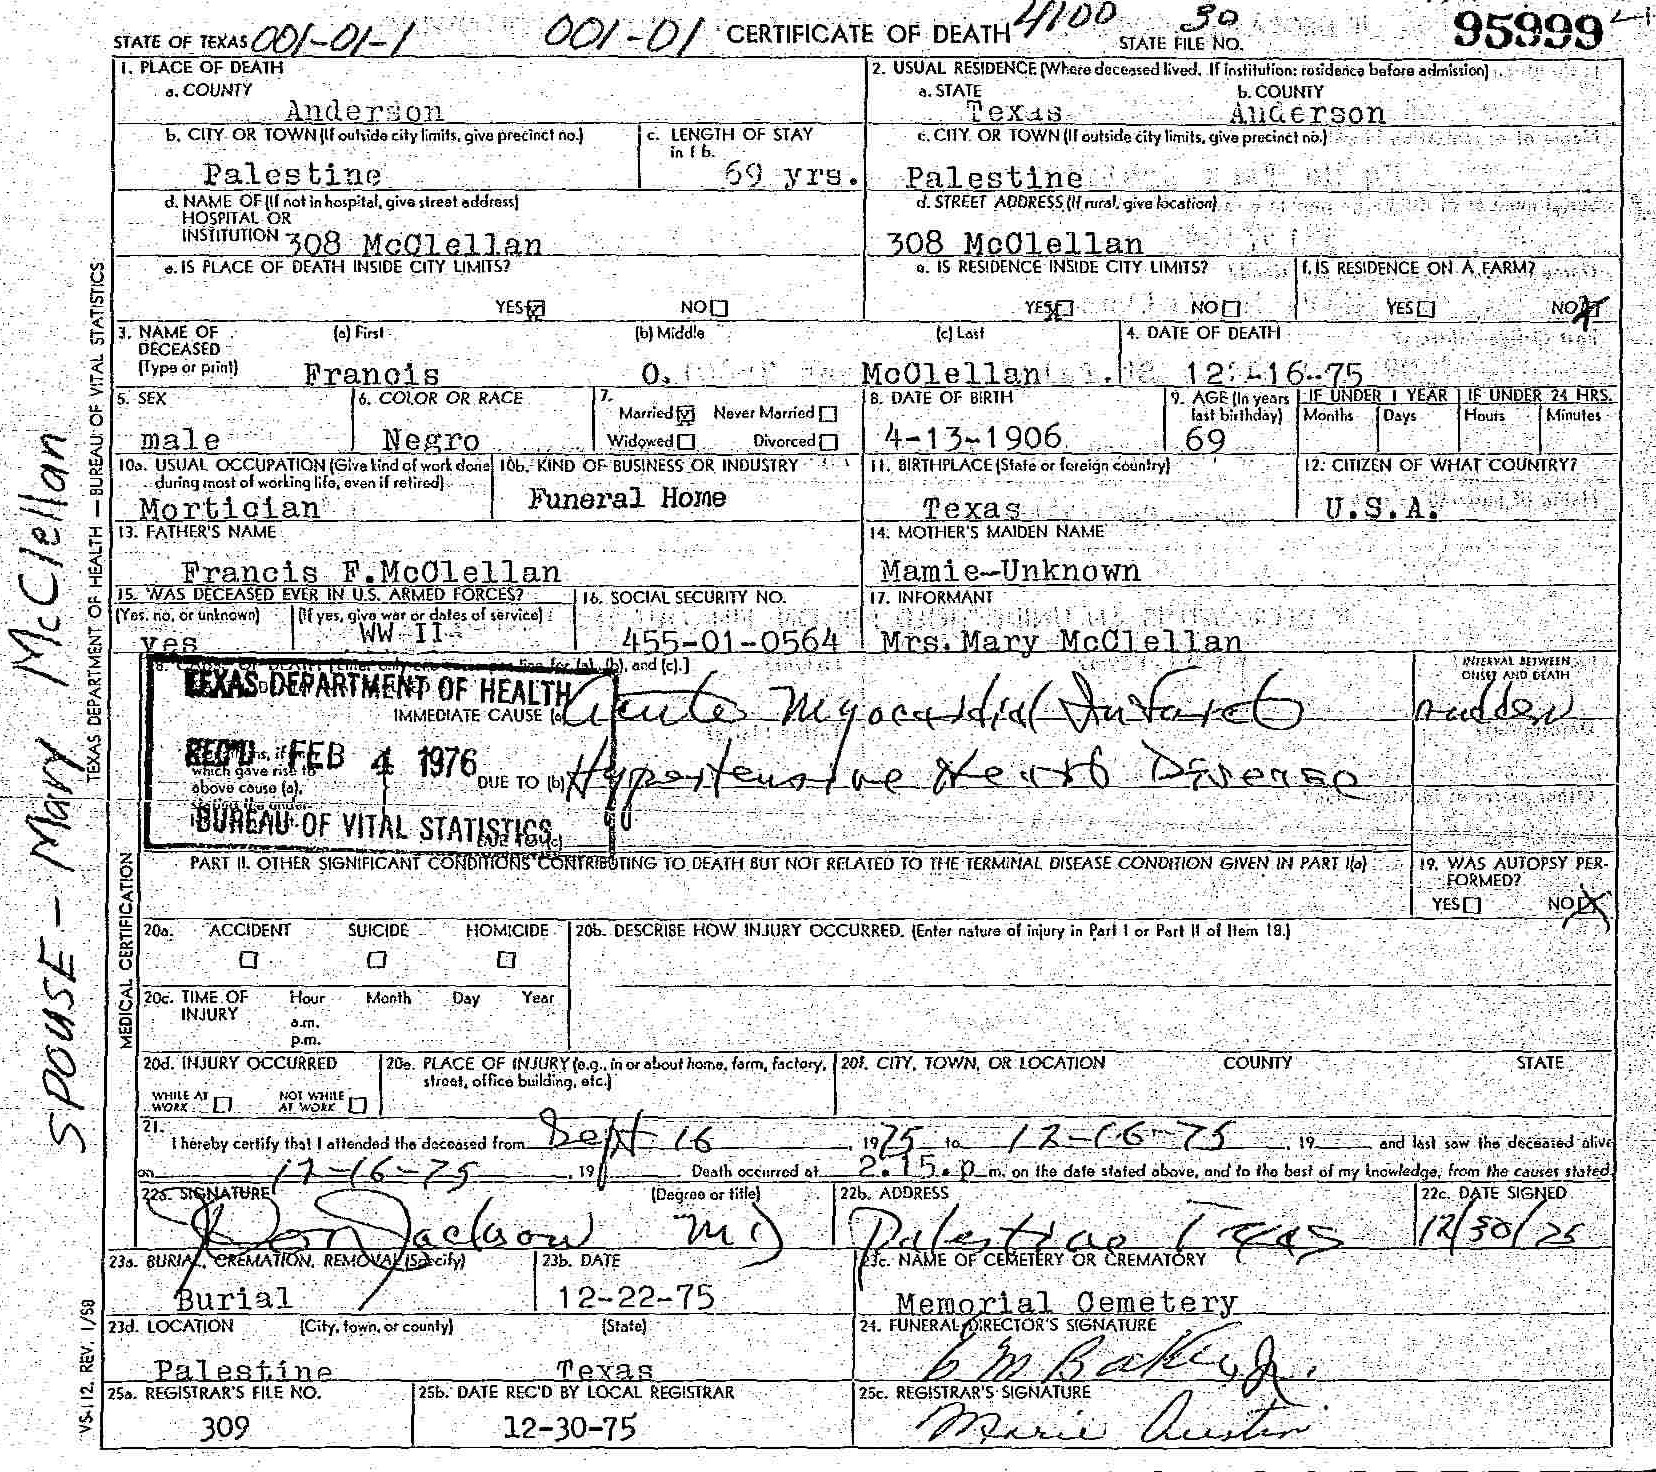 STATE OF TEXAS 001-01-1 001-01 CERTIFICATE OF DEATH 4100 30 STATE FILE NO. 95999
1. PLACE OF DEATH
a. COUNTY
Anderson
2. USUAL RESIDENCE (Where deceased lived. If institution: residence before admission)
a. STATE b. COUNTY
Texas Anderson
b. CITY OR TOWN (If outside city limits, give precinct no.) c. LENGTH OF STAY in 1b.
Palestine 69 yrs.
c. CITY OR TOWN (If outside city limits, give precinct no.)
Palestine
d. NAME OF (If not in hospital, give street address)
HOSPITAL OR
INSTITUTION 308 McClellan
d. STREET ADDRESS (If rural, give location)
308 McClellan
e. IS PLACE OF DEATH INSIDE CITY LIMITS?
YES NO
e. IS RESIDENCE INSIDE CITY LIMITS? f. IS RESIDENCE ON A FARM?
YES NO YES NO
3. NAME OF DECEASED (Type or print) (a) First (b) Middle (c) Last 4. DATE OF DEATH
Francis O. McClellan 12-16-75
5. SEX 6. COLOR OR RACE 7. Married Never Married Widowed Divorced
male Negro
8. DATE OF BIRTH 9. AGE (In years last birthday) IF UNDER 1 YEAR IF UNDER 24 HRS.
Months Days Hours Minutes
4-13-1906 69
10a. USUAL OCCUPATION (Give kind of work done during most of working life, even if retired) 10b. KIND OF BUSINESS OR INDUSTRY
Mortician Funeral Home
11. BIRTHPLACE (State or foreign country) 12. CITIZEN OF WHAT COUNTRY?
Texas U.S.A.
13. FATHER'S NAME 14. MOTHER'S MAIDEN NAME
Francis F.McClellan Mamie-Unknown
15. WAS DECEASED EVER IN U.S. ARMED FORCES? 16. SOCIAL SECURITY NO. 17. INFORMANT
(Yes, no, or unknown) (If yes, give war or dates of service)
yes WW II 455-01-0564 Mrs. Mary McClellan
18. CAUSE OF DEATH (Enter only one cause per line for (a), (b), and (c).)
INTERVAL BETWEEN ONSET AND DEATH
TEXAS DEPARTMENT OF HEALTH
IMMEDIATE CAUSE (a) Acute Myocardial Infarct sudden
REC'D FEB 4 1976
which gave rise to
above cause (a),
stating the under-
DUE TO (b) Hypertensive Heart Disease
BUREAU OF VITAL STATISTICS
DUE TO (c)
PART II. OTHER SIGNIFICANT CONDITIONS CONTRIBUTING TO DEATH BUT NOT RELATED TO THE TERMINAL DISEASE CONDITION GIVEN IN PART I(a)
19. WAS AUTOPSY PERFORMED?
YES NO
20a. ACCIDENT SUICIDE HOMICIDE 20b. DESCRIBE HOW INJURY OCCURRED. (Enter nature of injury in Part I or Part II of Item 18.)
20c. TIME OF INJURY Hour Month Day Year
a.m.
p.m.
20d. INJURY OCCURRED 20e. PLACE OF INJURY (e.g., in or about home, farm, factory, street, office building, etc.) 20f. CITY, TOWN, OR LOCATION COUNTY STATE
WHILE AT WORK NOT WHILE AT WORK
21. I hereby certify that I attended the deceased from Sept 16, 1975 to 12-16-75, 19 and last saw the deceased alive
on 12-16-75, 19 Death occurred at 2.15. p m. on the date stated above, and to the best of my knowledge, from the causes stated
22a. SIGNATURE (Degree or title) 22b. ADDRESS 22c. DATE SIGNED
Jackson MD Palestine Texas 12/30/75
23a. BURIAL, CREMATION, REMOVAL (Specify) 23b. DATE 23c. NAME OF CEMETERY OR CREMATORY
Burial 12-22-75 Memorial Cemetery
23d. LOCATION (City, town, or county) (State) 24. FUNERAL DIRECTOR'S SIGNATURE
Palestine Texas Baker, Jr.
25a. REGISTRAR'S FILE NO. 25b. DATE REC'D BY LOCAL REGISTRAR 25c. REGISTRAR'S SIGNATURE
309 12-30-75 Marie Austin
SPOUSE - Mary McClellan
TEXAS DEPARTMENT OF HEALTH — BUREAU OF VITAL STATISTICS
MEDICAL CERTIFICATION
VS-112, REV. 1/58